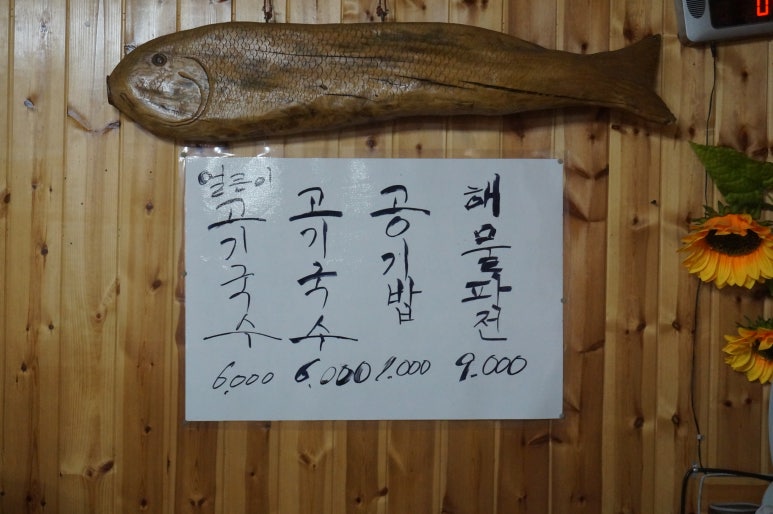 얼큰이 고기국수 6,000
고기국수 6,000
공기밥 1.000
해물파전 9.000